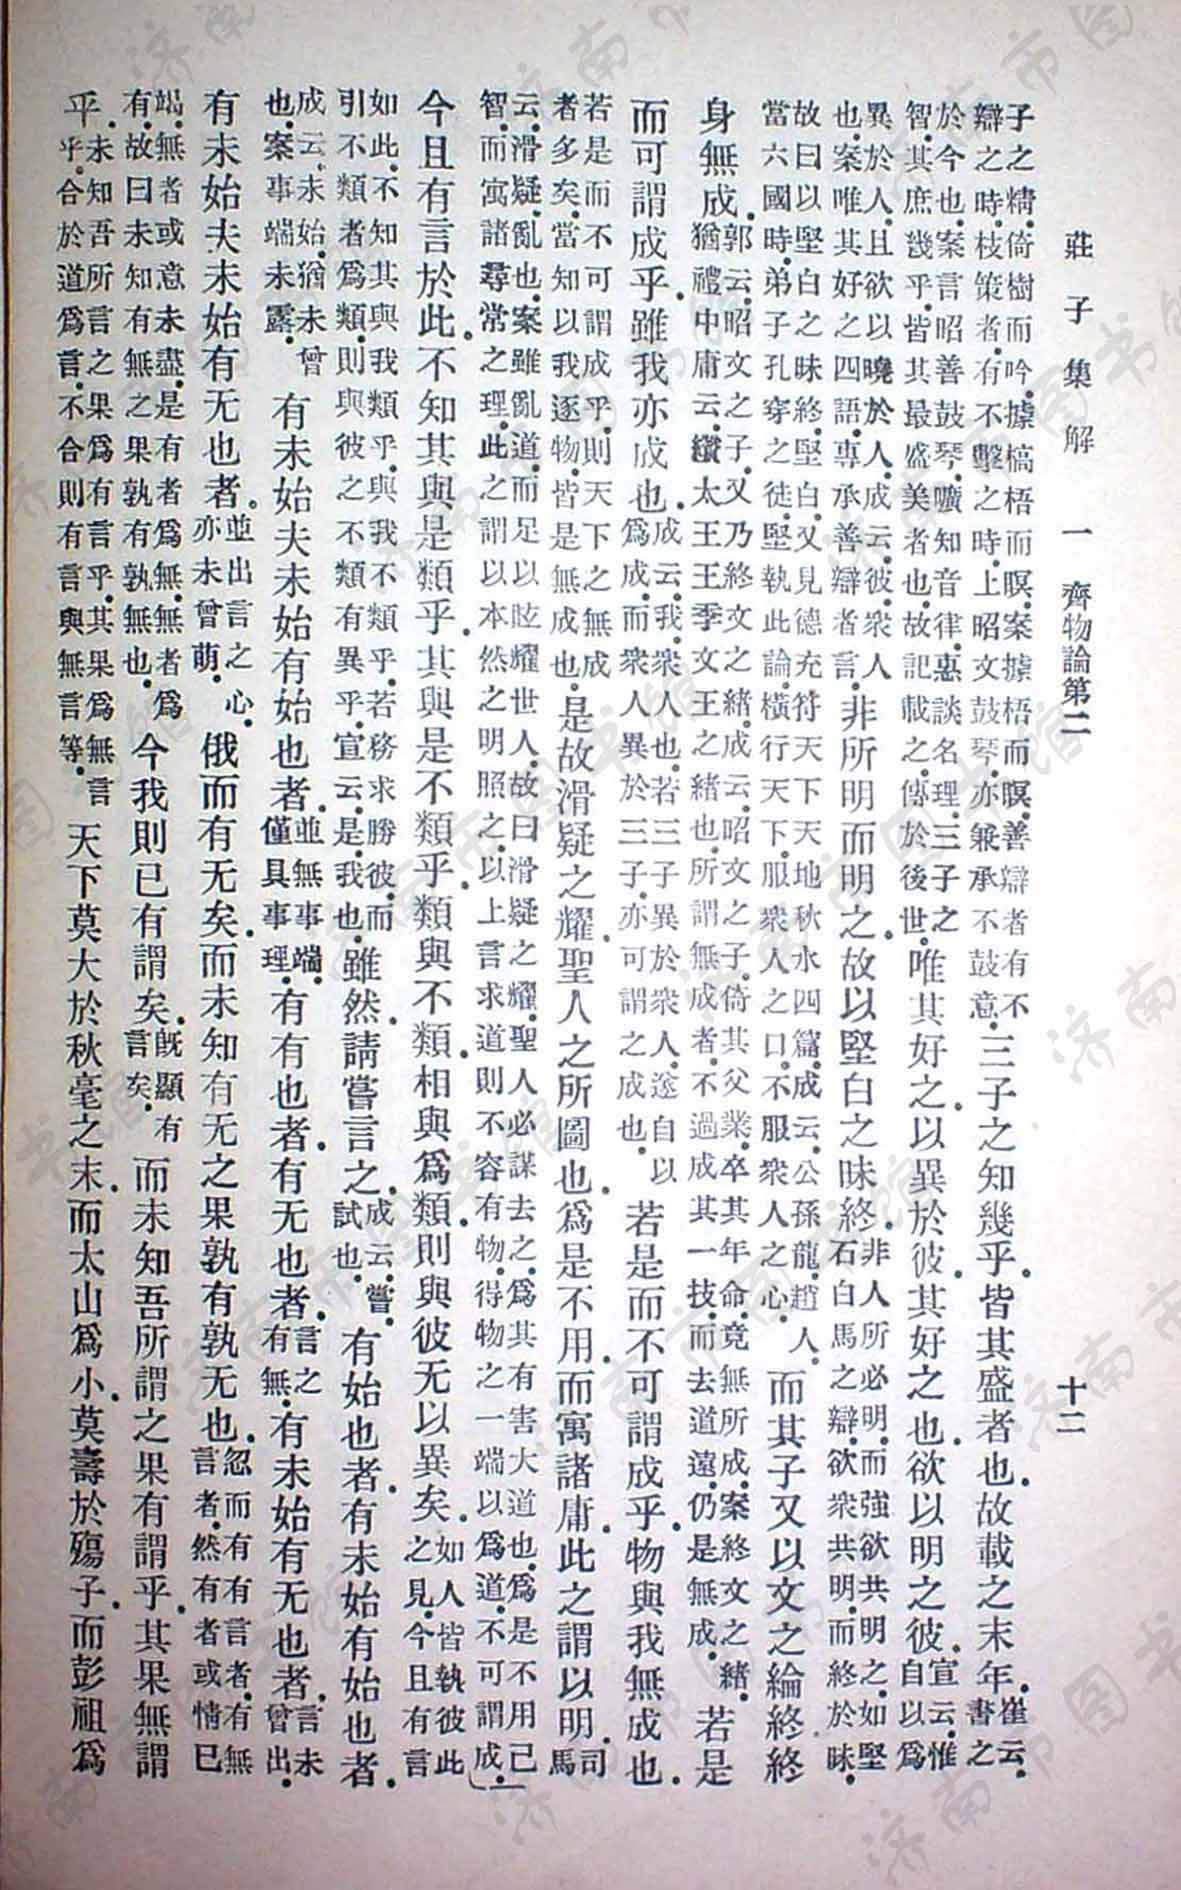 莊子集解　一　齊物論第二　十二
子之精。倚樹而吟。據槁梧而瞑。案據梧而瞑。善辯者有不辯之時。枝策者。有不擊之時。上昭文鼓琴。亦兼承不鼓意。三子之知幾乎。皆其盛者也。故載之末年。崔云。書之
於今也。案言昭善鼓琴。曠知音律。惠談名理。三子之智。其庶幾乎。皆其最盛美者也。故記載之。傳於後世。唯其好之。以異於彼。其好之也。欲以明之彼。宣云。惟自以爲
異於人。且欲以曉於人。成云。彼。衆人也。案唯其好之四語。專承善辯者言。非所明而明之。故以堅白之昧終。非人所必明。而強欲共明之。如堅石白馬之辯。欲衆共明。而終於昧。
故曰以堅白之昧終。堅白。又見德充符天下天地秋水四篇。成云。公孫龍。趙人。當六國時。弟子孔穿之徒。堅執此論。橫行天下。服衆人之口。不服衆人之心。而其子又以文之綸終終
身無成。郭云。昭文之子。又乃終文之緒。成云。昭文之子。倚其父業。卒其年命。竟無所成。案終文之緒。猶禮中庸云。纘太王王季文王之緒也。所謂無成者。不過成其一技。而去道遠。仍是無成。若是
而可謂成乎。雖我亦成也。成云。我。衆人也。若三子異於衆人。遂自以爲成。而衆人異於三子。亦可謂之成也。若是而不可謂成乎。物與我無成也。
若是而不可謂成乎。則天下之無成者多矣。當知以我逐物。皆是無成也。是故滑疑之耀。聖人之所圖也。爲是不用。而寓諸庸。此之謂以明。司馬
云。滑疑。亂也。案雖亂道。而足以眩耀世人。故曰滑疑之耀。聖人必謀去之。爲其有害大道也。爲是不用己智。而寓諸尋常之理。此之謂以本然之明照之。以上言求道則不容有物。得物之一端以爲道。不可謂成。（一
今且有言於此。不知其與是類乎。其與是不類乎。類與不類。相與爲類。則與彼无以異矣。如人皆執彼此之見。今且有言
如此。不知其與我類乎。與我不類乎。若務求勝彼。而引不類者爲類。則與彼之不類有異乎。宣云。是。我也。雖然。請嘗言之。成云。嘗。試也。有始也者。有未始有始也者。
成云。未始。猶未曾也。案事端未露。有未始夫未始有始也者。並無事端。僅具事理。有有也者。有无也者。言之有無。有未始有无也者。言未曾出。
有未始夫未始有无也者。並出言之心。亦未曾萌。俄而有无矣。而未知有无之果孰有孰无也。忽而有有言者。有無言者。然有者或情已
竭。無者或意未盡。是有者爲無。無者爲有。故曰未知有無之果孰有孰無也。今我則已有謂矣。既顯有言矣。而未知吾所謂之果有謂乎。其果無謂
乎。未知吾所言之果爲有言乎。其果爲無言乎。合於道爲言。不合則有言與無言等。天下莫大於秋毫之末。而太山爲小。莫壽於殤子。而彭祖爲